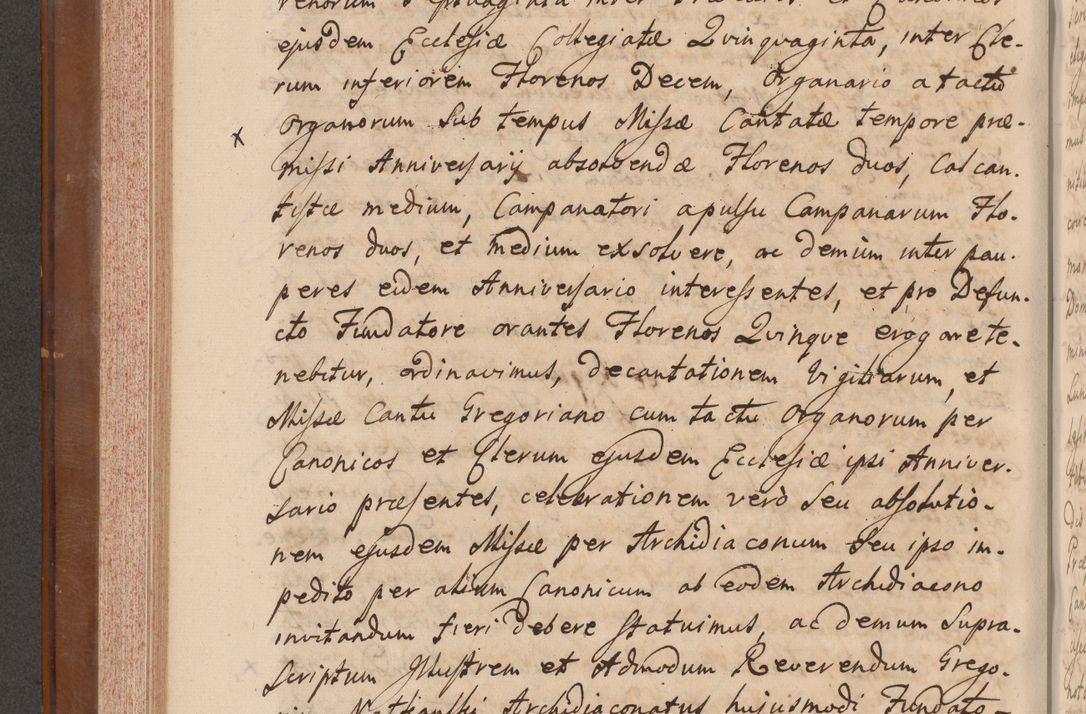 ejusdem Ecclesiæ Collegiatæ Quinquaginta, inter Cle-
rum inferiorem Florenos Decem, Organario a tactu
Organorum sub tempus Missæ Cantatæ tempore præ-
missi Anniversarij absolvendæ Florenos duos, Calcan-
tistæ medium, Campanatori a pulsu Campanarum Flo-
renos duos, et medium exsolvere, ac demum inter pau-
peres eidem Anniversario interessentes, et pro Defun-
cto Fundatore orantes Florenos Quinque erogare te-
nebitur, ordinavimus, decantationem Vigiliarum, et
Missæ Cantu Gregoriano cum tactu Organorum per
Canonicos et Clerum ejusdem Ecclesiæ ipsi Anniver-
sario præsentes, celebrationem verò seu absolutio-
nem ejusdem Missæ per Archidiaconum seu ipso im-
pedito per alium Canonicum ab eodem Archidiacono
invitandum fieri debere statuimus, ac demum supra-
scriptum Illustrem et Admodum Reverendum Grego-
Archidiaconatus hujusmodi Fundato-